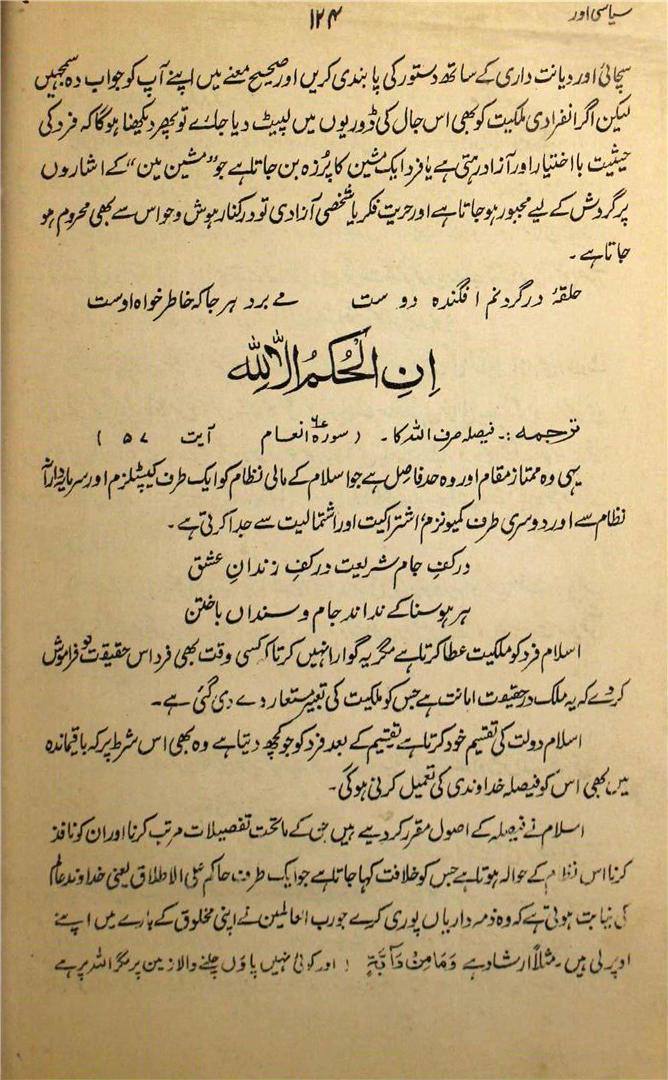 سیاسی اور
۱۲۴
سچائی اور دیانت داری کے ساتھ دستور کی پابندی کریں اور صحیح معنے میں اپنے آپ کو جواب دہ سمجھیں
لیکن اگر انفرادی ملکیت کو بھی اس جال کی ڈوریوں میں لپیٹ دیا جائے تو پھر دیکھنا ہوگا کہ فرد کی
حیثیت با اختیار اور آزاد رہتی ہے یا فرد ایک مشین کا پرُزہ بن جاتا ہے جو ”مشین مین“ کے اشاروں
پر گردش کے لیے مجبور ہو جاتا ہے اور حریت فکر یا شخصی آزادی تو درکنار ہوش و حواس سے بھی محروم ہو
جاتا ہے۔
حلقۂ در گردنم افگندہ دوست مے برد ہر جا کہ خاطر خواہ اوست
اِنِ الْحُکمُ اِلَّا لِلّٰہِ
ترجمہ :۔ فیصلہ صرف اللہ کا۔ (سورہ انعام ع۶ آیت ۵۷)
یہی وہ ممتاز مقام اور وہ حد فاصل ہے جو اسلام کے مالی نظام کو ایک طرف کیپٹلزم اور سرمایہ دارانہ
نظام سے اور دوسری طرف کمیونزم اشتراکیت اور اشتمالیت سے جدا کرتی ہے۔
در کفِ جام شریعت در کفِ زندانِ عشق
ہر ہوسنا کے نداند جام و سنداں باختن
اسلام فرد کو ملکیت عطا کرتا ہے مگر یہ گوارا نہیں کرتا کہ کسی وقت بھی فرد اس حقیقت کو فراموش
کر دے کہ یہ ملک در حقیقت امانت ہے جس کو ملکیت کی تعبیر مستعار دے دی گئی ہے۔
اسلام دولت کی تقسیم خود کرتا ہے تقسیم کے بعد فرد کو جو کچھ دیتا ہے وہ بھی اس شرط پر کہ باقیماندہ
میں بھی اس کو فیصلہ خداوندی کی تعمیل کرنی ہوگی۔
اسلام نے فیصلہ کے اصول مقرر کر دیے ہیں جن کے ماتحت تفصیلات مرتب کرنا اور ان کو نافذ
کرنا اس نظام کے حوالہ ہوتا ہے جس کو خلافت کہا جاتا ہے جو ایک طرف حاکم علی الاطلاق یعنی خداوند عالم
کی نیابت ہوتی ہے کہ وہ ذمہ داریاں پوری کرے جو رب العالمین نے اپنی مخلوق کے بارے میں اپنے
اوپر لی ہیں۔ مثلاً ارشاد ہے وَمَا مِنْ دَآبَّۃٍ (اور کوئی نہیں پاؤں چلنے والا زمین پر مگر اللہ پر ہے